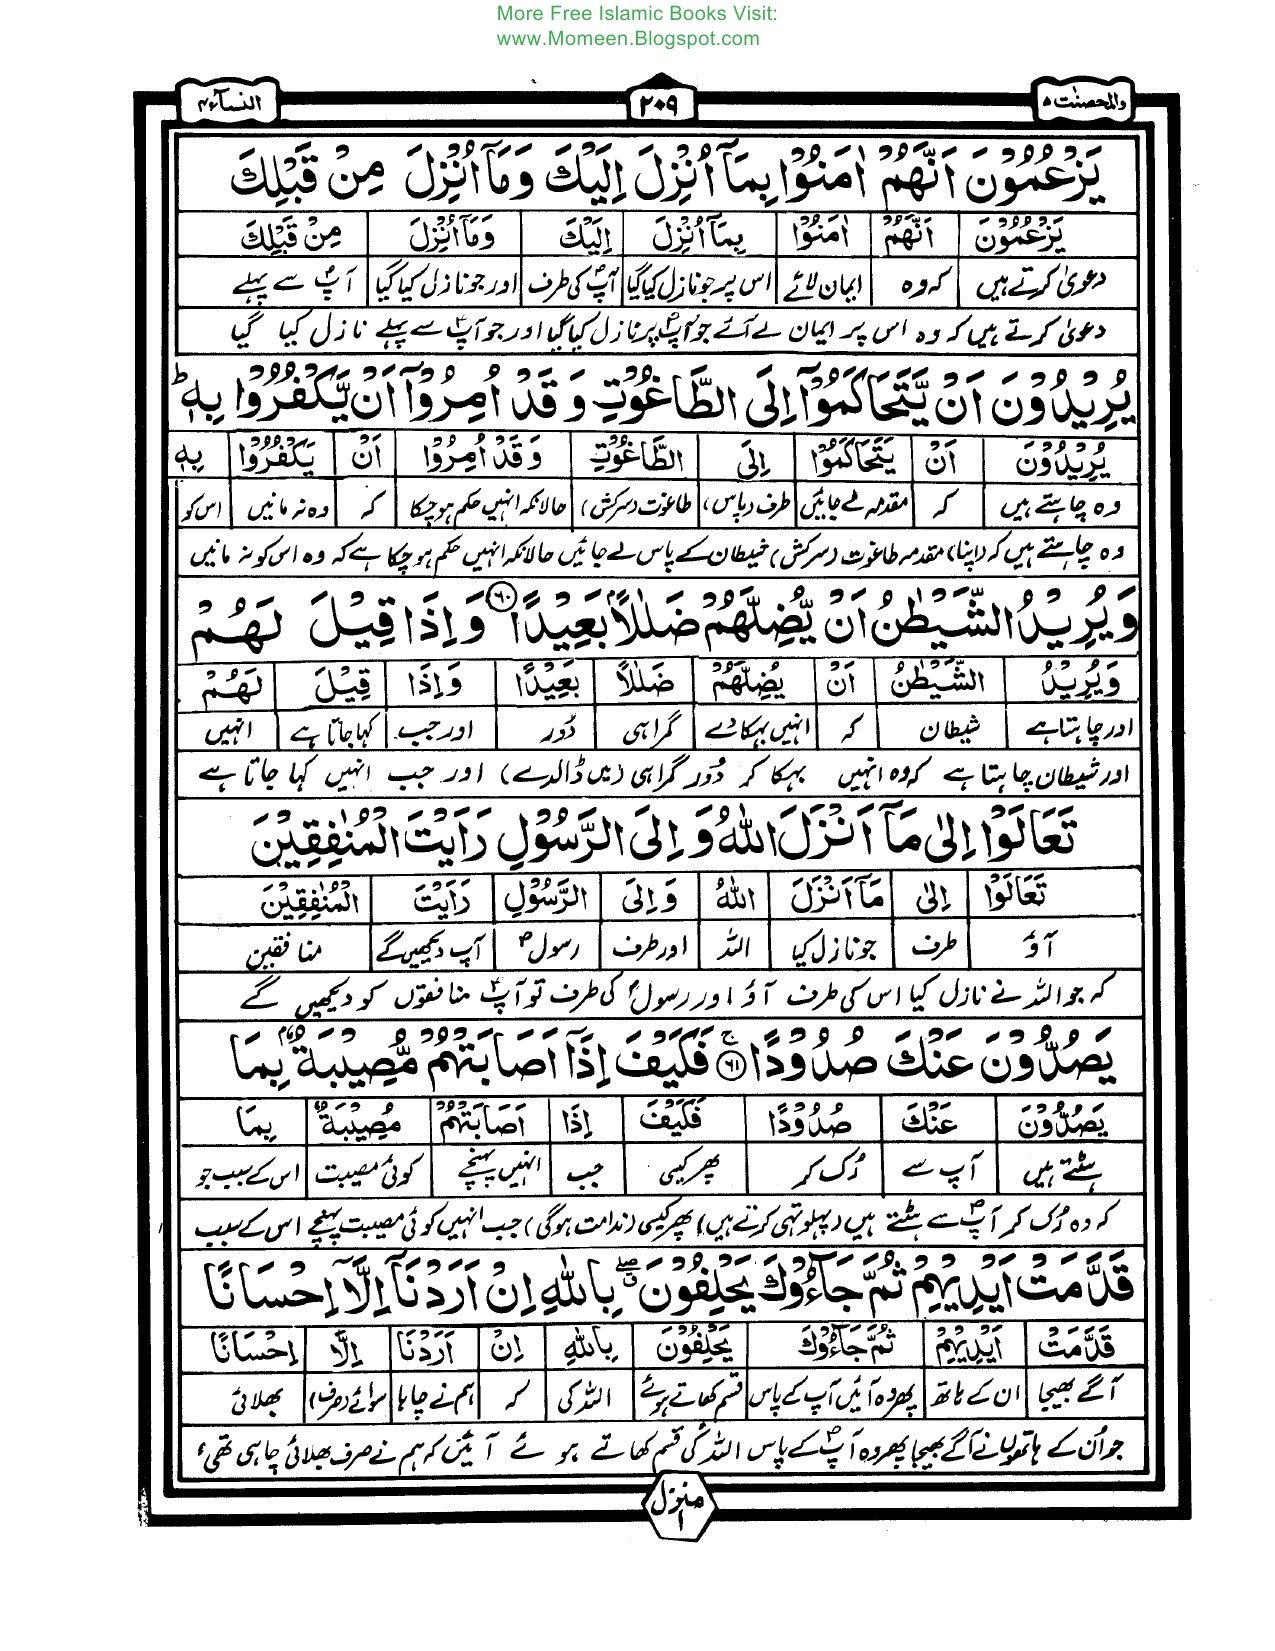 More Free Islamic Books Visit:
www.Momeen.Blogspot.com
والمحصنٰت ۵ ۲۰۹ النسآء ۴
يَزْعُمُوْنَ اَنَّهُمْ اٰمَنُوْا بِمَآ اُنْزِلَ اِلَيْكَ وَمَآ اُنْزِلَ مِنْ قَبْلِكَ
يَزْعُمُوْنَ اَنَّهُمْ اٰمَنُوْا بِمَآ اُنْزِلَ اِلَيْكَ وَمَآ اُنْزِلَ مِنْ قَبْلِكَ
دعویٰ کرتے ہیں کہ وہ ایمان لائے اس پر جو نازل کیا گیا آپؐ کی طرف اور جو نازل کیا گیا آپؐ سے پہلے
دعویٰ کرتے ہیں کہ وہ اس پر ایمان لے آئے جو آپؐ پر نازل کیا گیا اور جو آپؐ سے پہلے نازل کیا گیا
يُرِيْدُوْنَ اَنْ يَّتَحَاكَمُوْٓا اِلَى الطَّاغُوْتِ وَقَدْ اُمِرُوْٓا اَنْ يَّكْفُرُوْا بِهٖ ؕ
يُرِيْدُوْنَ اَنْ يَتَحَاكَمُوْٓا اِلَى الطَّاغُوْتِ وَقَدْ اُمِرُوْٓا اَنْ يَكْفُرُوْا بِهٖ
وہ چاہتے ہیں کہ مقدمہ لے جائیں طرف (پاس) طاغوت (سرکش) حالانکہ انہیں حکم ہوچکا کہ وہ نہ مانیں اس کو
وہ چاہتے ہیں کہ (اپنا) مقدمہ طاغوت (سرکش) شیطان کے پاس لے جائیں حالانکہ انہیں حکم ہوچکا ہے کہ وہ اس کو نہ مانیں
وَيُرِيْدُ الشَّيْطٰنُ اَنْ يُّضِلَّهُمْ ضَلٰلًاۢ بَعِيْدًا ۶۰ وَاِذَا قِيْلَ لَهُمْ
وَيُرِيْدُ الشَّيْطٰنُ اَنْ يُضِلَّهُمْ ضَلٰلًا بَعِيْدًا وَاِذَا قِيْلَ لَهُمْ
اور چاہتا ہے شیطان کہ انہیں بہکا دے گمراہی دُور اور جب کہا جاتا ہے انہیں
اور شیطان چاہتا ہے کہ وہ انہیں بہکا کر دُور گمراہی (میں ڈالدے) اور جب انہیں کہا جاتا ہے
تَعَالَوْا اِلٰى مَآ اَنْزَلَ اللهُ وَاِلَى الرَّسُوْلِ رَاَيْتَ الْمُنٰفِقِيْنَ
تَعَالَوْا اِلٰى مَآ اَنْزَلَ اللهُ وَاِلَى الرَّسُوْلِ رَاَيْتَ الْمُنٰفِقِيْنَ
آؤ طرف جو نازل کیا اللہ اور طرف رسولؐ آپ دیکھیں گے منافقین
کہ جو اللہ نے نازل کیا اس کی طرف آؤ اور رسولؐ کی طرف تو آپؐ منافقوں کو دیکھیں گے
يَصُدُّوْنَ عَنْكَ صُدُوْدًا ۚ ۶۱ فَكَيْفَ اِذَآ اَصَابَتْهُمْ مُّصِيْبَةٌۢ بِمَا
يَصُدُّوْنَ عَنْكَ صُدُوْدًا فَكَيْفَ اِذَا اَصَابَتْهُمْ مُصِيْبَةٌۢ بِمَا
ہٹتے ہیں آپ سے رُک کر پھر کیسی جب انہیں پہنچے کوئی مصیبت اس کے سبب جو
کہ وہ رُک کر آپؐ سے ہٹتے ہیں (پہلو تہی کرتے ہیں) پھر کیسی (ندامت ہوگی) جب انہیں کوئی مصیبت پہنچے اس کے سبب
قَدَّمَتْ اَيْدِيْهِمْ ثُمَّ جَآءُوْكَ يَحْلِفُوْنَ ۖ بِاللهِ اِنْ اَرَدْنَآ اِلَّآ اِحْسَانًا
قَدَّمَتْ اَيْدِيْهِمْ ثُمَّ جَآءُوْكَ يَحْلِفُوْنَ بِاللهِ اِنْ اَرَدْنَا اِلَّا اِحْسَانًا
آگے بھیجا ان کے ہاتھ پھر وہ آئیں آپ کے پاس قسم کھاتے ہوئے اللہ کی کہ ہم نے چاہا سوائے (صرف) بھلائی
جو اُن کے ہاتھوں نے آگے بھیجا پھر وہ آپؐ کے پاس اللہ کی قسم کھاتے ہوئے آئیں کہ ہم نے صرف بھلائی چاہی تھی،
منزل ۱